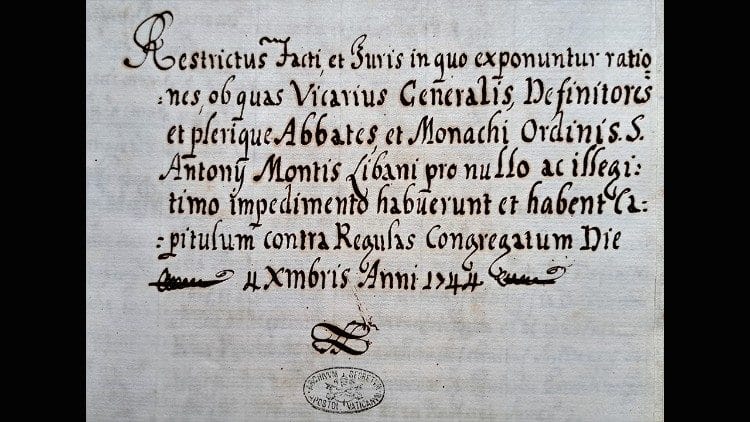 Restrictus Facti, et Juris in quo exponuntur ratio=
=nes, ob quas Vicarius Generalis, Definitores
et plerique Abbates, et Monachi Ordinis. S.
Antonÿ Montis Libani pro nullo ac illegi=
timo impedimento habuerunt et habent Ca=
=pitulum contra Regulas Congregatum Die
4 Xmbris Anni 1744
ARCHIVUM SECRETUM
APOSTOL. VATICANUM